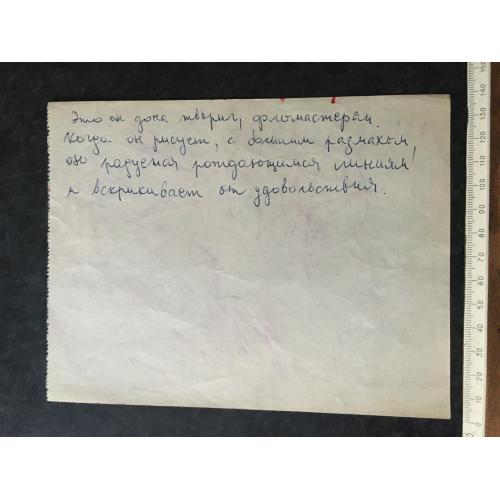 Это он дома творил, фломастером.
Когда он рисует, с большим размахом,
он радуется рождающимся линиям
и вскрикивает от удовольствия.
0 10 20 30 40 50 60 70 80 90 100 110 120 130 140 150